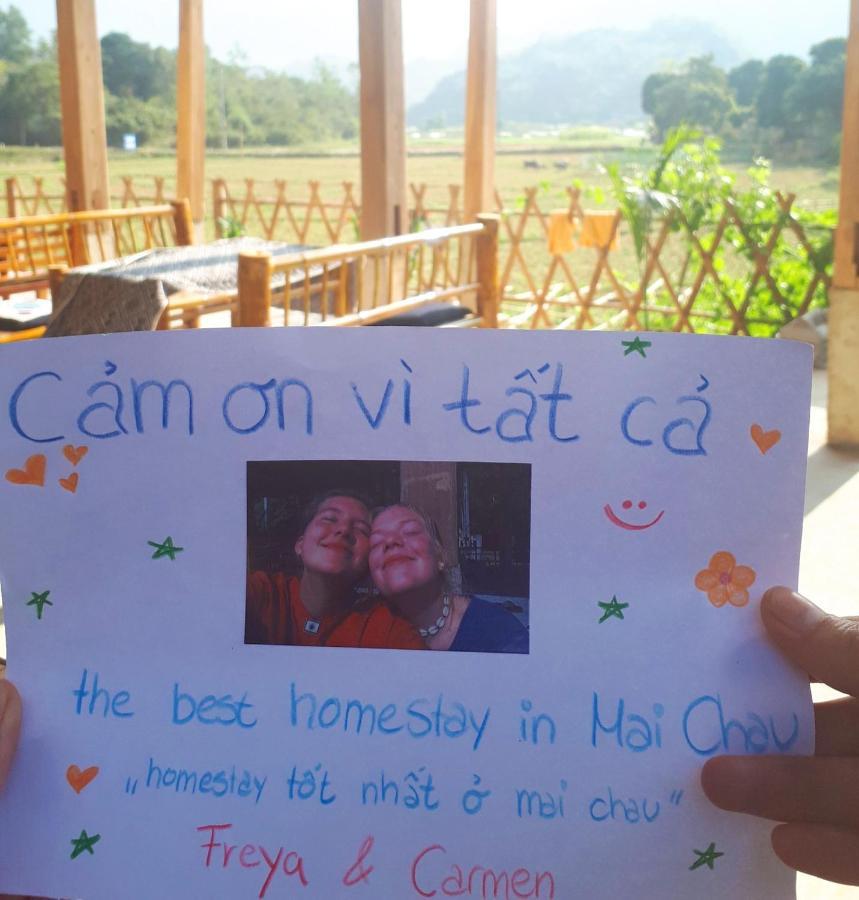 Cảm ơn vì tất cả
the best homestay in Mai Chau
„homestay tốt nhất ở mai chau"
Freya & Carmen